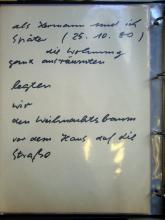 als Hermann und ich
später (25.10.80)
die Wohnung
ganz ausräumten
legten
wir
den Weihnachtsbaum
vor dem Haus auf die
Straße